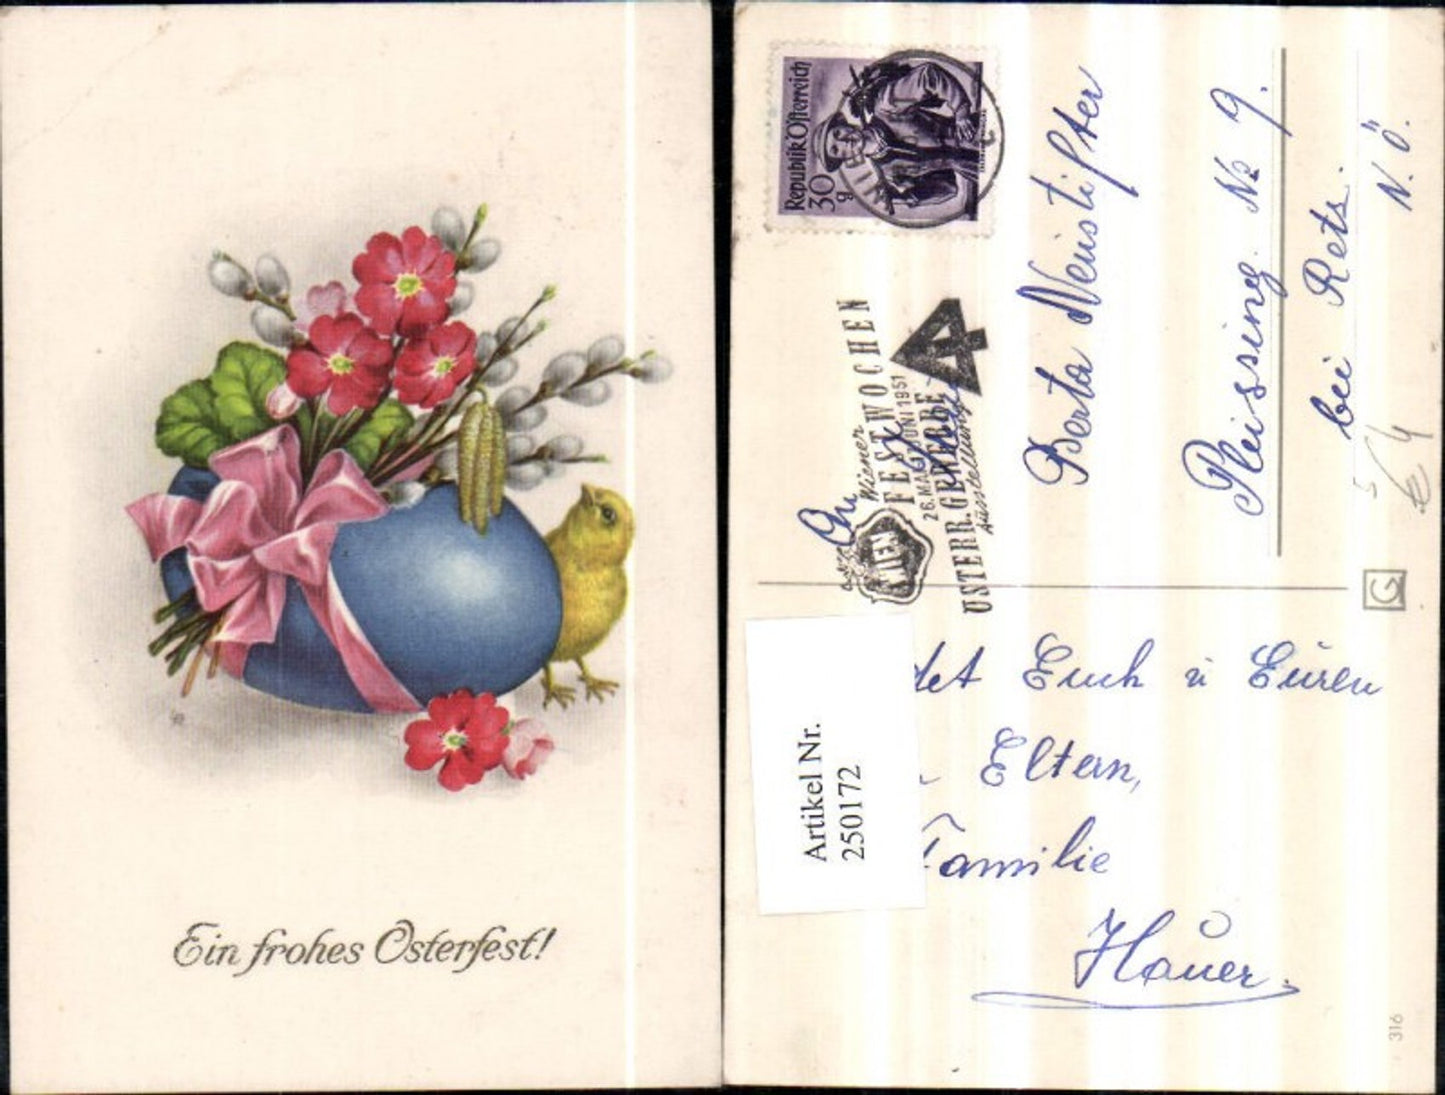 Ein frohes Osterfest!
Republik Österreich
30
g
WIEN
Wiener
FESTWOCHEN
26. MAI JUNI 1951
4
ÖSTERR. GEWERBE
Ausstellung
WIEN
An
Berta Neustifter
Pleissing. № 9.
bei Rets.
N.Ö.
€ 4
G
Artikel Nr.
250172
det Euch u Euren
Eltern,
Familie
Hauer.
316